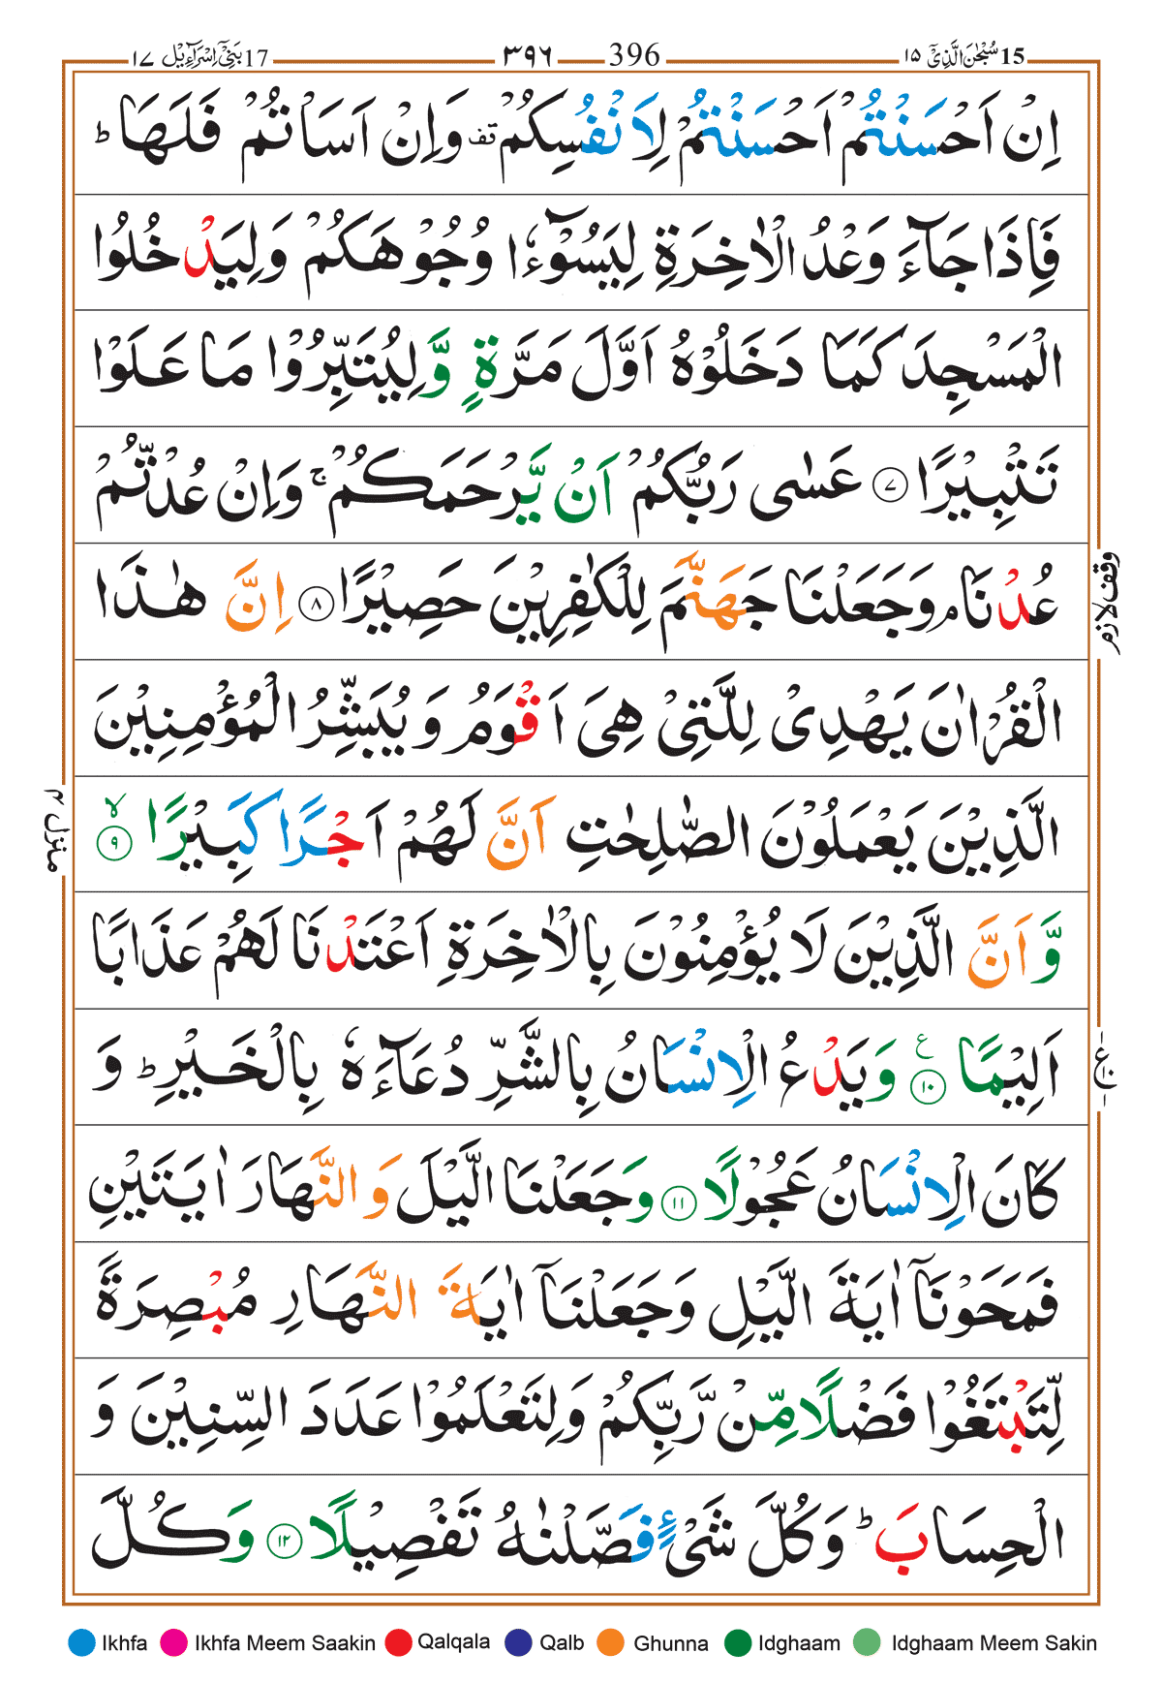 15 سُبْحٰنَ الَّذِیْۤ ۱۵
396 ۳۹۶
17 بَنِیْۤ اِسْرَآءِیْل ۱۷
اِنْ اَحْسَنْتُمْ اَحْسَنْتُمْ لِاَنْفُسِكُمْ ۫ وَاِنْ اَسَاْتُمْ فَلَهَا ؕ
فَاِذَا جَآءَ وَعْدُ الْاٰخِرَةِ لِیَسُوْٓءٗا وُجُوْهَكُمْ وَلِیَدْخُلُوا
الْمَسْجِدَ كَمَا دَخَلُوْهُ اَوَّلَ مَرَّةٍ وَّلِیُتَبِّرُوْا مَا عَلَوْا
تَتْبِیْرًا ۷ عَسٰی رَبُّكُمْ اَنْ یَّرْحَمَكُمْ ۚ وَاِنْ عُدْتُّمْ
عُدْنَا ۘ وَجَعَلْنَا جَهَنَّمَ لِلْكٰفِرِیْنَ حَصِیْرًا ۸ اِنَّ هٰذَا
وقف لازم
الْقُرْاٰنَ یَهْدِیْ لِلَّتِیْ هِیَ اَقْوَمُ وَ یُبَشِّرُ الْمُؤْمِنِیْنَ
الَّذِیْنَ یَعْمَلُوْنَ الصّٰلِحٰتِ اَنَّ لَهُمْ اَجْرًا كَبِیْرًا ۙ ۹
منزل ۴
وَّاَنَّ الَّذِیْنَ لَا یُؤْمِنُوْنَ بِالْاٰخِرَةِ اَعْتَدْنَا لَهُمْ عَذَابًا
اَلِیْمًا ۱۰ ع وَیَدْعُ الْاِنْسَانُ بِالشَّرِّ دُعَآءَهٗ بِالْخَیْرِ ؕ وَ
ع
كَانَ الْاِنْسَانُ عَجُوْلًا ۱۱ وَجَعَلْنَا الَّیْلَ وَ النَّهَارَ اٰیَتَیْنِ
فَمَحَوْنَاۤ اٰیَةَ الَّیْلِ وَجَعَلْنَاۤ اٰیَةَ النَّهَارِ مُبْصِرَةً
لِّتَبْتَغُوْا فَضْلًا مِّنْ رَّبِّكُمْ وَلِتَعْلَمُوْا عَدَدَ السِّنِیْنَ وَ
الْحِسَابَ ؕ وَكُلَّ شَیْءٍ فَصَّلْنٰهُ تَفْصِیْلًا ۱۲ وَكُلَّ
Ikhfa Ikhfa Meem Saakin Qalqala Qalb Ghunna Idghaam Idghaam Meem Sakin